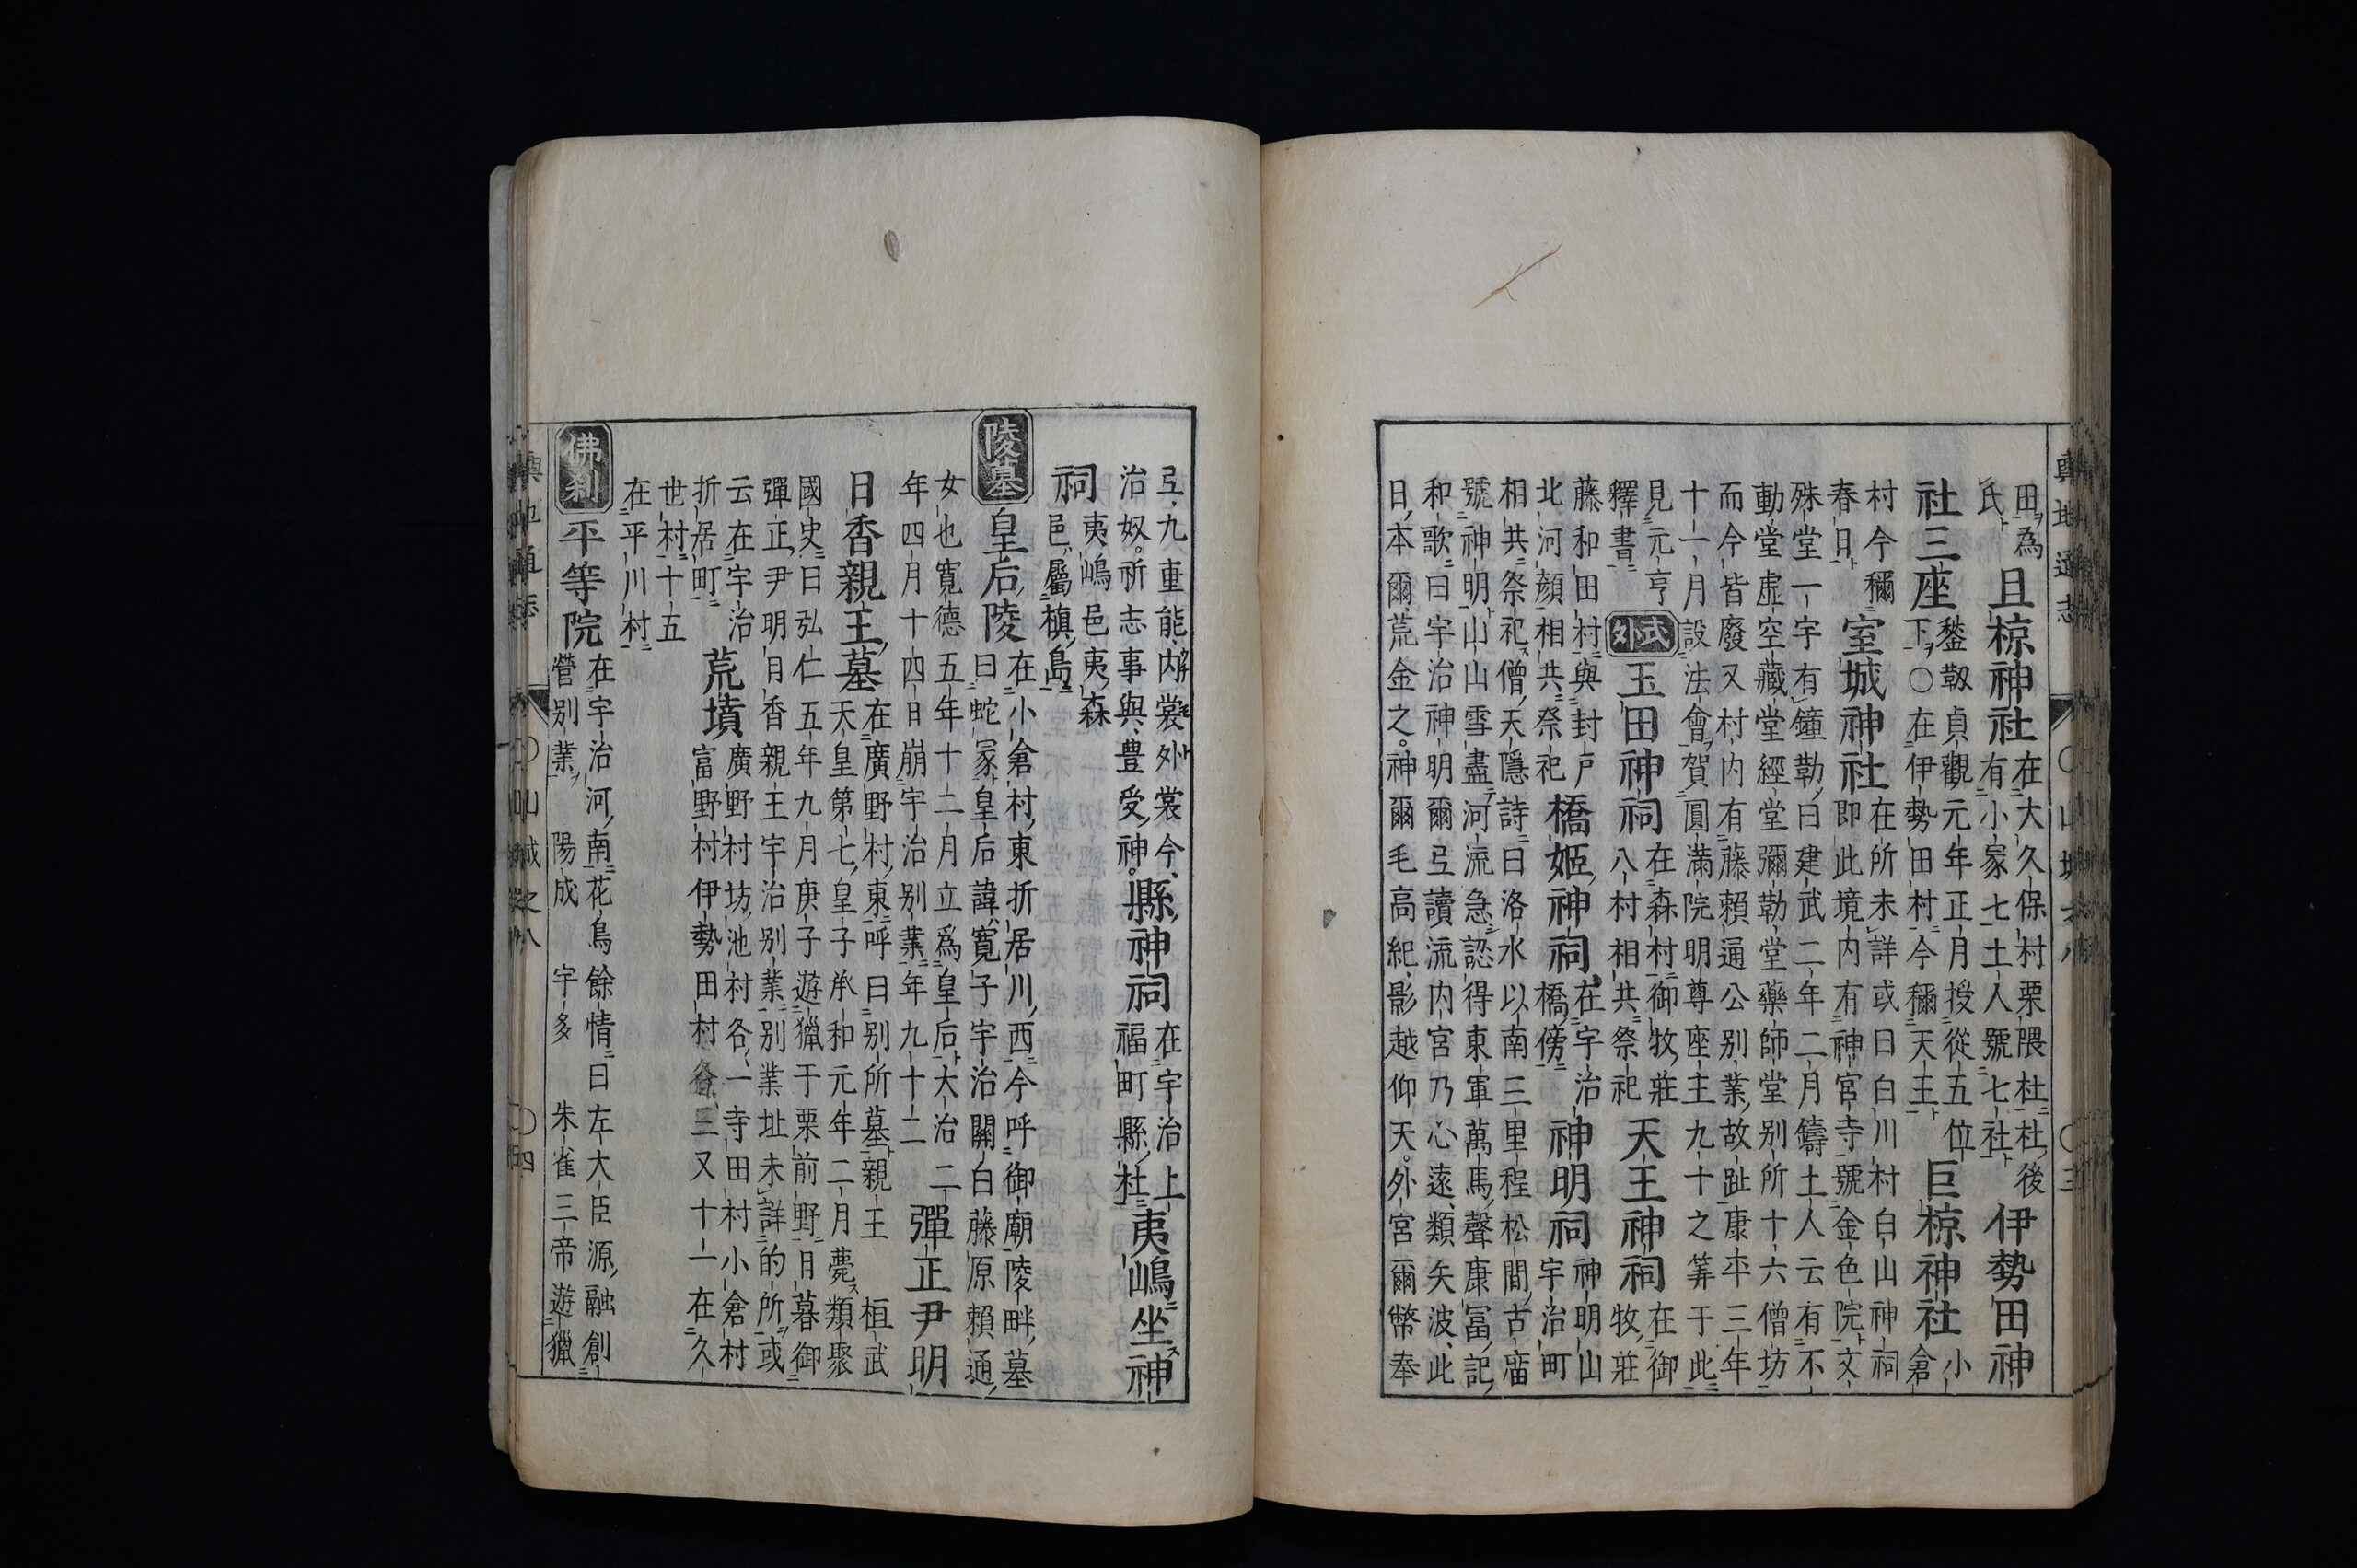 田為
氏
且椋神社
在大久保村栗隈杜杜後
有小冢七土人號七社
伊勢田神
社三座
鍫靱貞觀元年正月授從五位
下○在伊勢田村今稱天王
巨椋神社
小
倉
村今稱
春日
室城神社
在所未詳或曰白川村白山神祠
即此境内有神宮寺號金色院文
殊堂一宇有鐘勒曰建武二年二月鑄土人云有不
動堂虚空藏堂經堂彌勒堂藥師堂別所十六僧坊
而今皆廢又村内有藤賴通公別業故趾康平三年
十一月設法會賀圓滿院明尊座主九十之筭于此
見元亨
釋書
式外
玉田神祠
在森村御牧莊
八村相共祭祀
天王神祠
在御
牧莊
藤和田村與封戸
北河顔相共祭祀
橋姫神祠
在宇治
橋傍
神明祠
神明山
宇治町
相共祭祀僧天隱詩曰洛水以南三里程松間古庿
號神明山山雪盡河流急認得東軍萬馬聲康冨記
和歌曰宇治神明爾弖讀流内宮乃心遠類矢波此
日本爾荒金之神爾毛高紀影越仰天外宮爾幣奉
弖九重能内裳外裳今
治奴祈志事與豊受神
縣神祠
在宇治上
福町縣杜
夷嶋坐神
祠
夷嶋邑夷森
邑屬槙島
陵墓
皇后陵
在小倉村東折居川西今呼御廟陵畔墓
曰蛇冢皇后諱寛子宇治關白藤原賴通
女也寛德五年十二月立爲皇后大治二
年四月十四日崩宇治別業年九十二
彈正尹明
日香親王墓
在廣野村東呼曰別所墓親王桓武
天皇第七皇子承和元年二月薨類聚
國史曰弘仁五年九月庚子遊獵于栗前野日暮御
彈正尹明日香親王宇治別業別業址未詳的所或
云在宇治
折居町
荒墳
廣野村坊池村各一寺田村小倉村
富野村伊勢田村各三又十一在久
世村十五
在平川村
佛刹
平等院
在宇治河南花鳥餘情曰左大臣源融創
營別業陽成宇多朱雀三帝遊獵
輿地通志
山城之八
○三
○四